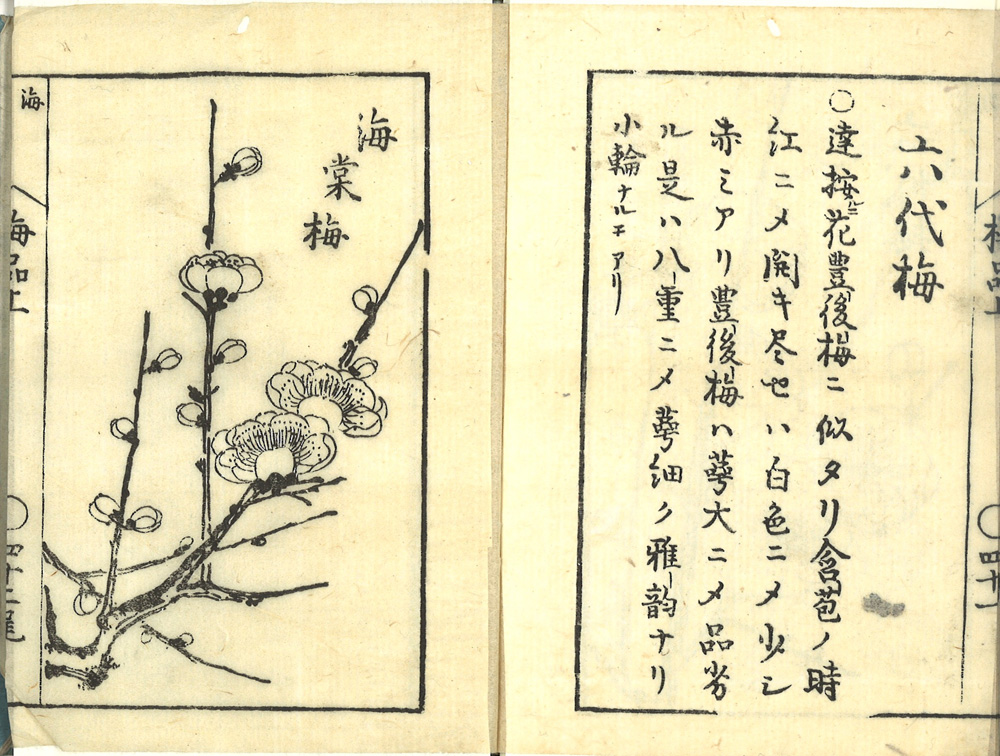 六代梅
○達按ルニ花豊後梅ニ似タリ含苞ノ時
江ニメ開キ尽セハ白色ニメ少シ
赤ミアリ豊後梅ハ萼大ニメ品劣
ル是ハ八重ニメ萼細ク雅韵ナリ
小輪ナルモアリ
海棠梅
海
梅品
○四十一